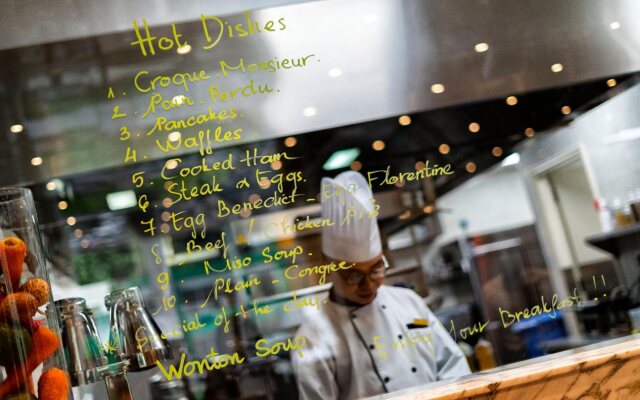 Hot Dishes
1. Croque. Monsieur.
2. Pain. Perdu.
3. Pancakes.
4. Waffles.
5. Cooked Ham
6. Steak & Eggs.
7. Egg Benedict - Egg Florentine
8. Beef / Chicken / Pork
9. Miso Soup.
10. Plain - Congee.
* Special of the day.
Wonton Soup
Enjoy Your Breakfast !!